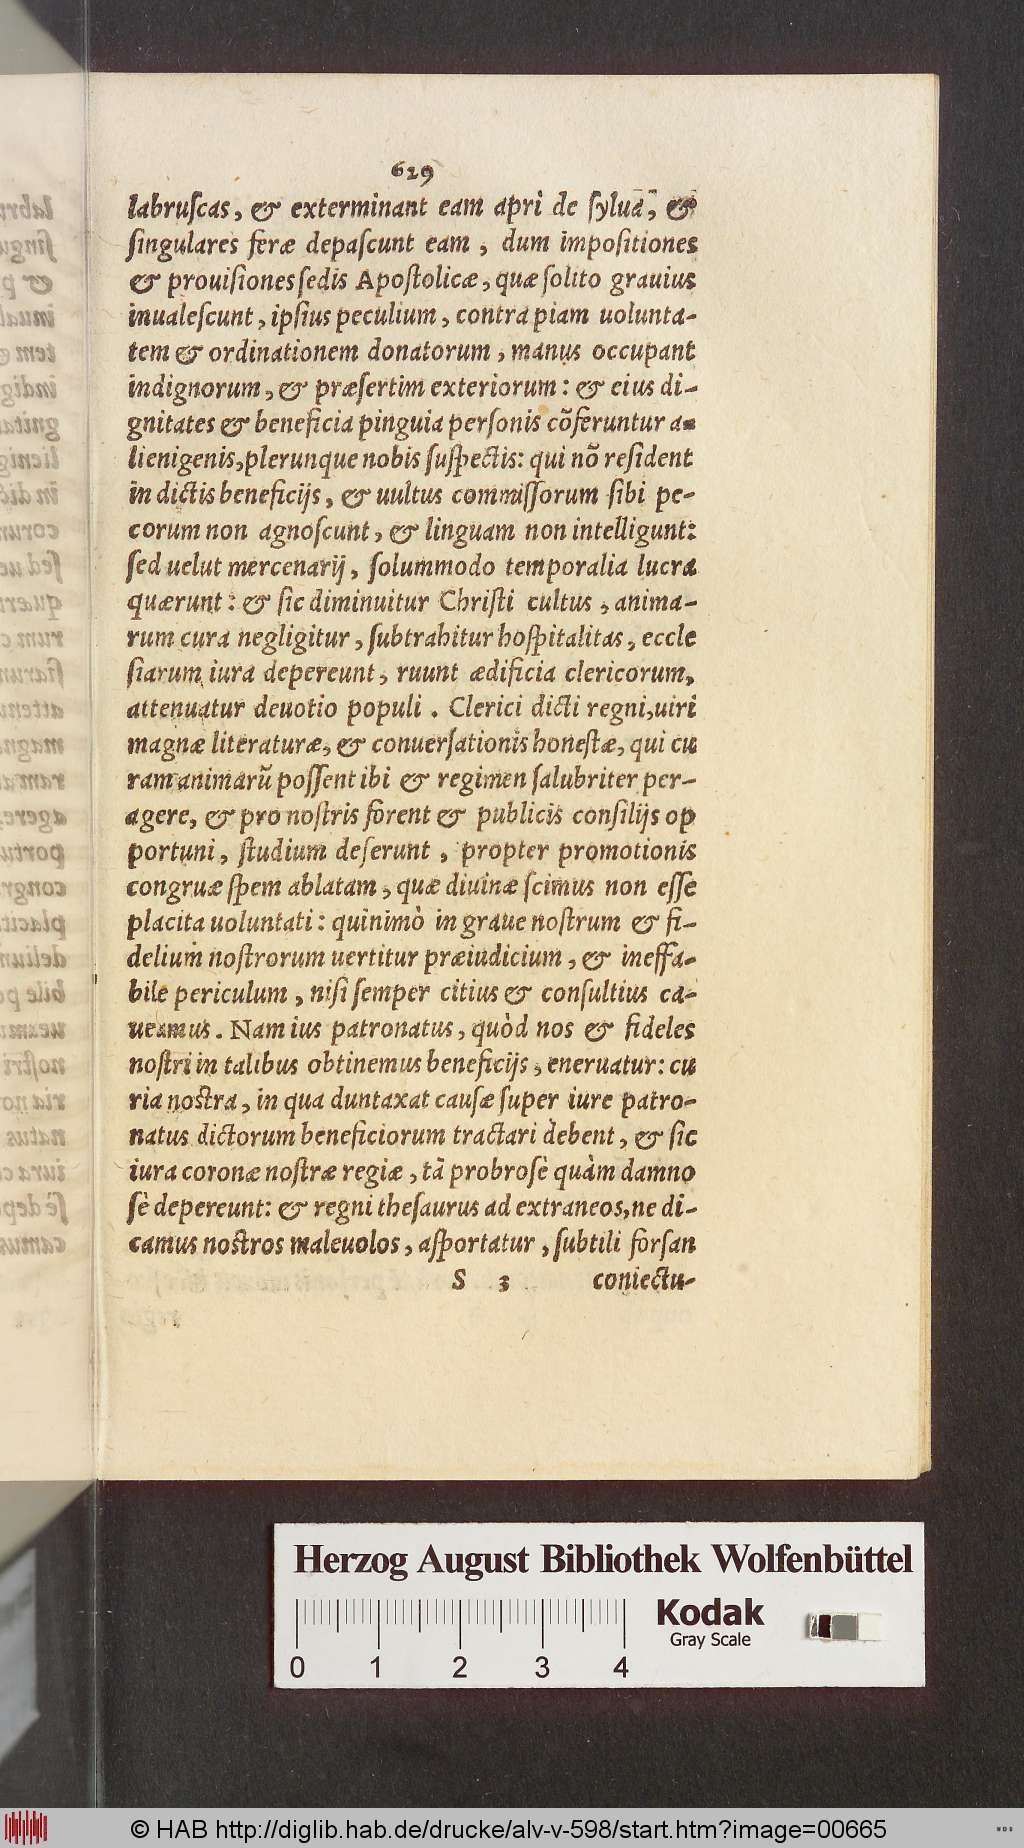 629
labruſcas, & exterminant eam apri de ſylua, &
ſingulares feræ depaſcunt eam, dum impoſitiones
& prouiſiones ſedis Apoſtolicæ, quæ ſolito grauius
inualeſcunt, ipſius peculium, contra piam uolunta-
tem & ordinationem donatorum, manus occupant
indignorum, & præſertim exteriorum: & eius di-
gnitates & beneficia pinguia perſonis cõferuntur a-
lienigenis, plerunque nobis ſuſpectis: qui nõ reſident
in dictis beneficijs, & uultus commiſſorum ſibi pe-
corum non agnoſcunt, & linguam non intelligunt:
ſed uelut mercenarij, ſolummodo temporalia lucra
quærunt: & ſic diminuitur Chriſti cultus, anima-
rum cura negligitur, ſubtrahitur hoſpitalitas, eccle
ſiarum iura depereunt, ruunt ædificia clericorum,
attenuatur deuotio populi. Clerici dicti regni, uiri
magnæ literaturæ, & conuerſationis honeſtæ, qui cu
ram animarũ poſſent ibi & regimen ſalubriter per-
agere, & pro noſtris forent & publicis conſilijs op
portuni, ſtudium deſerunt, propter promotionis
congruæ ſpem ablatam, quæ diuinæ ſcimus non eſſe
placita uoluntati: quinimò in graue noſtrum & fi-
delium noſtrorum uertitur præiudicium, & ineffa-
bile periculum, niſi ſemper citius & conſultius ca-
ueamus. Nam ius patronatus, quòd nos & fideles
noſtri in talibus obtinemus beneficijs, eneruatur: cu
ria noſtra, in qua duntaxat cauſæ ſuper iure patro-
natus dictorum beneficiorum tractari debent, & ſic
iura coronæ noſtræ regiæ, tã probroſè quàm damno
ſè depereunt: & regni theſaurus ad extraneos, ne di-
camus noſtros maleuolos, aſportatur, ſubtili forſan
S 3 coniectu-
Herzog August Bibliothek Wolfenbüttel
Kodak
Gray Scale
0 1 2 3 4
© HAB http://diglib.hab.de/drucke/alv-v-598/start.htm?image=00665